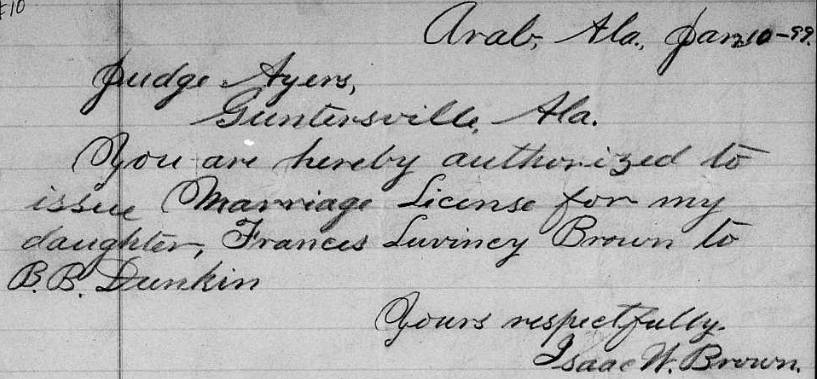 #10
Arab, Ala., Jan. 10-99.
Judge Ayers,
Guntersville, Ala.
You are hereby authorized to
issue Marriage License for my
daughter, Frances Luviney Brown to
B.B. Dunkin
Yours respectfully.
Isaac W. Brown.